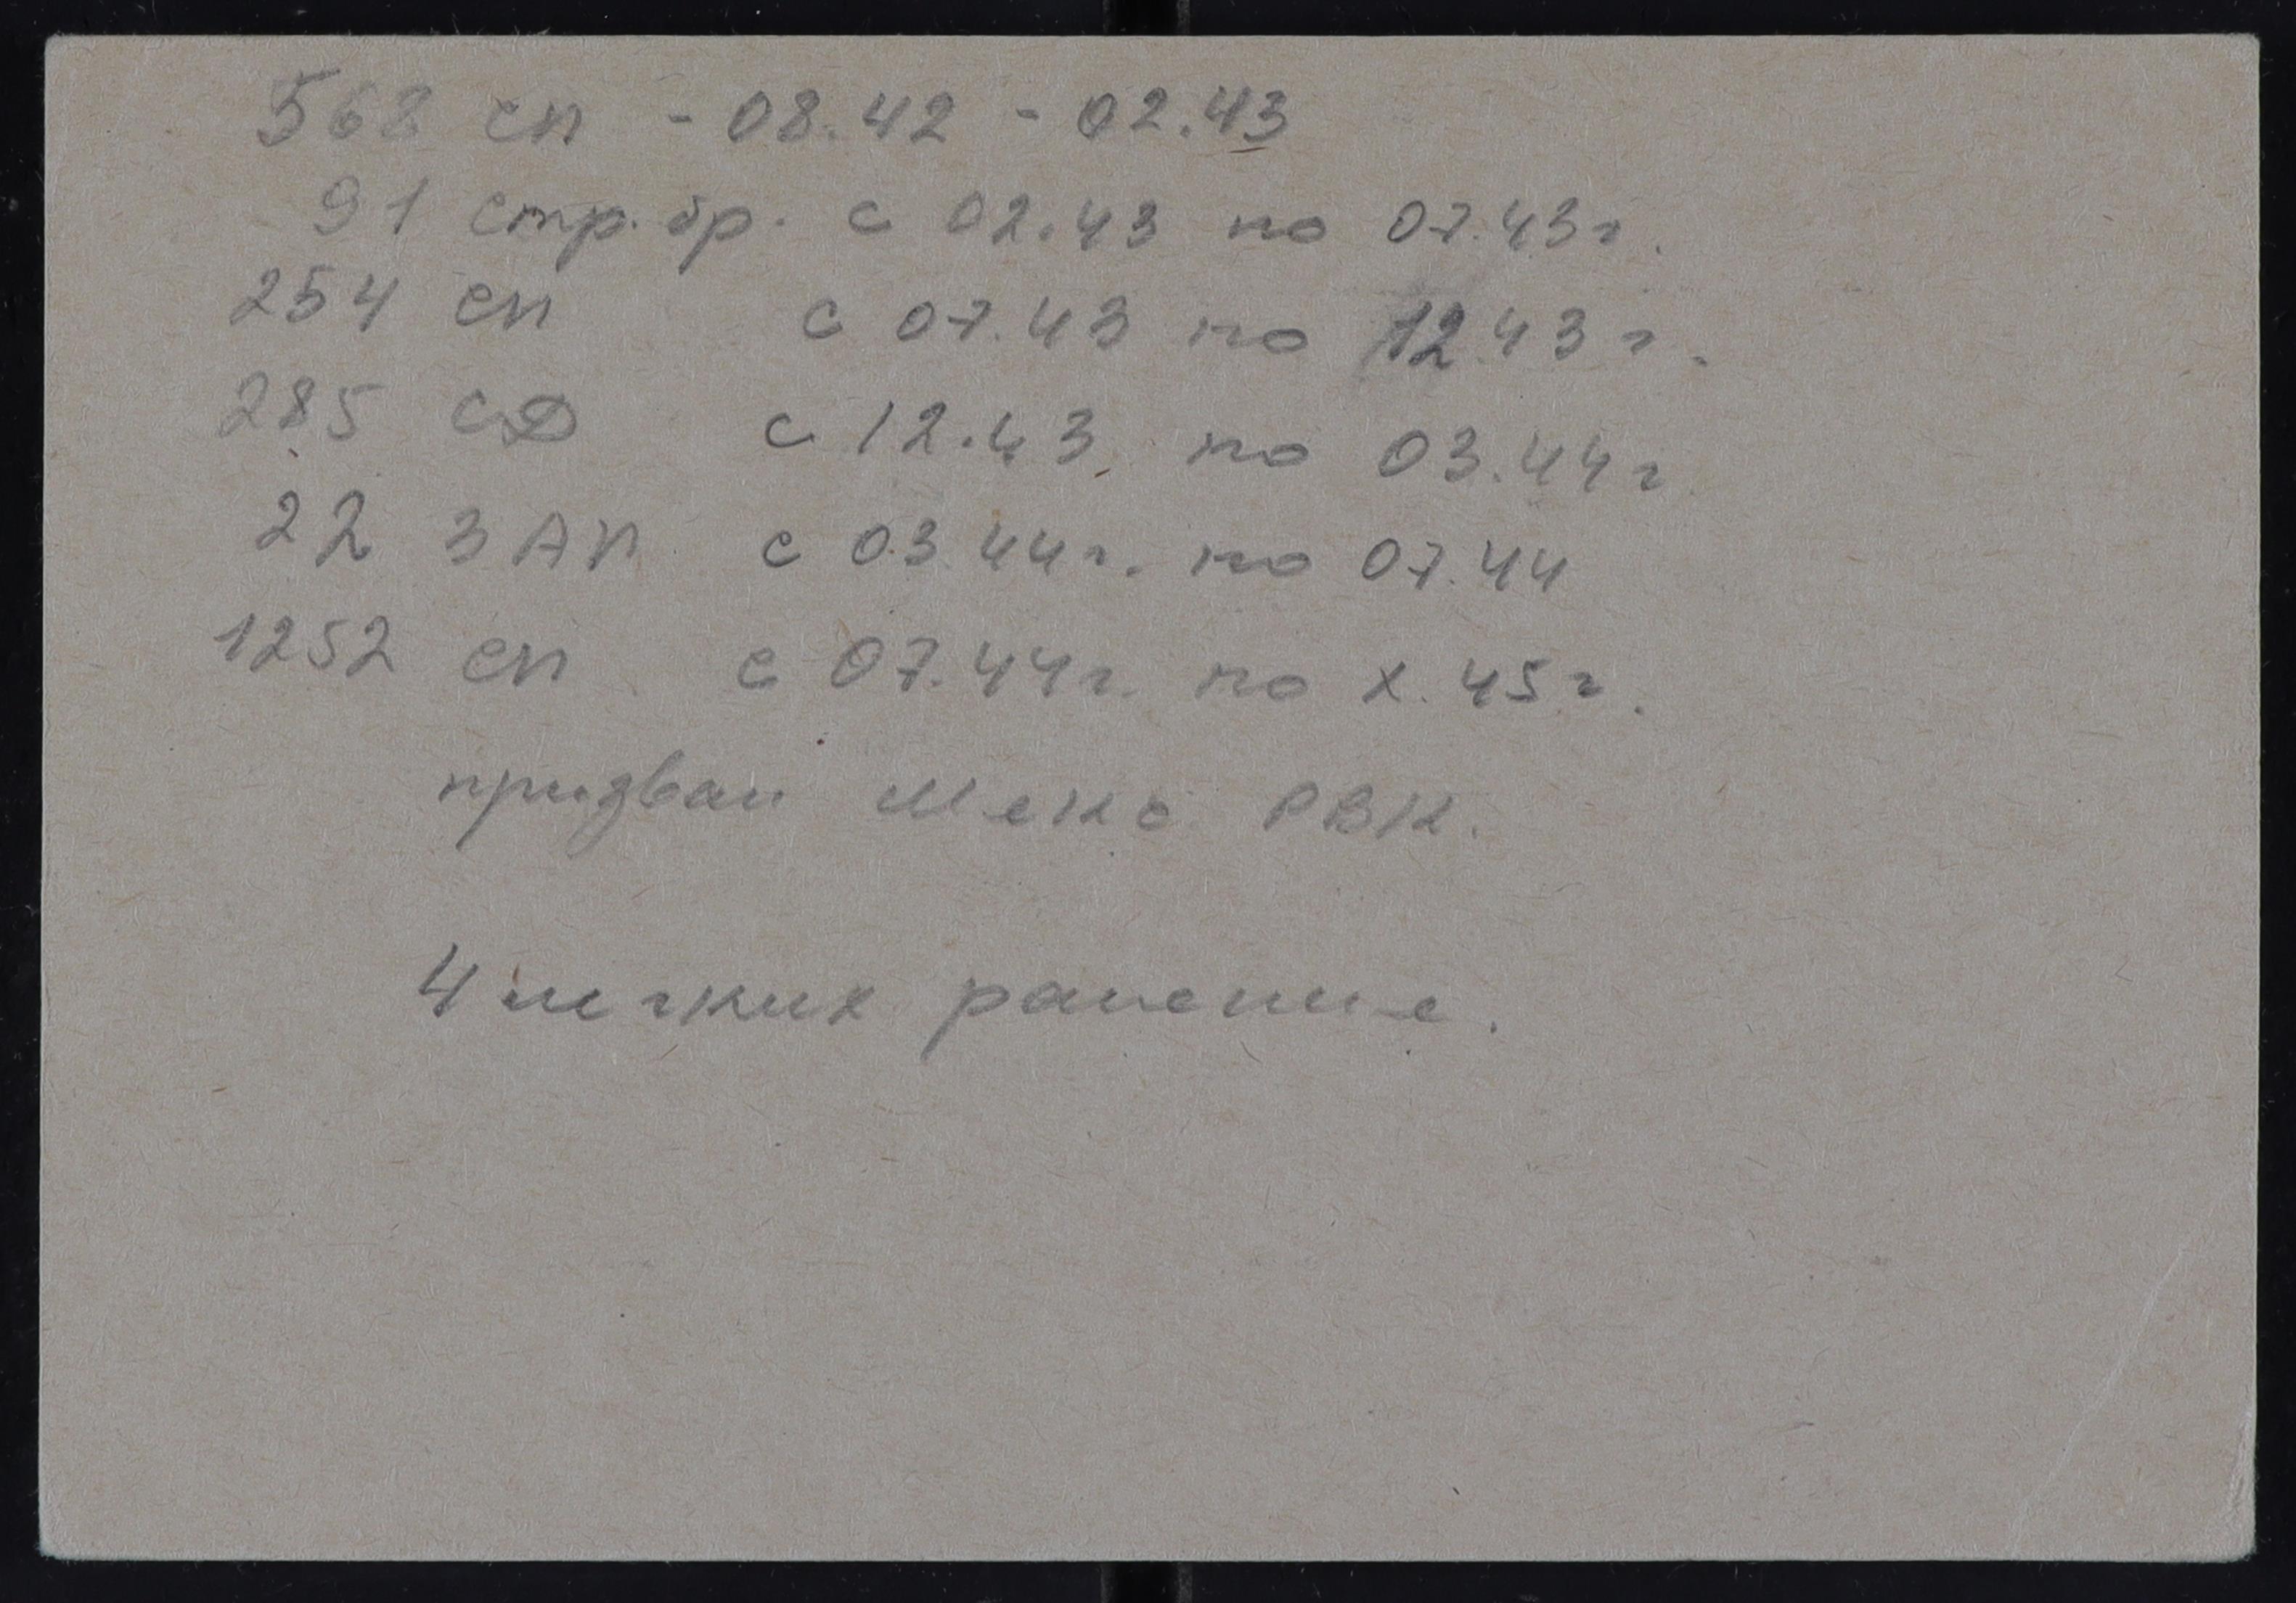 568 сп - 08.42 - 02.43
91 стр. бр. с 02.43 по 07.43 г.
254 сп с 07.43 по 12.43 г.
285 сд с 12.43 по 03.44 г
22 ЗАП с 03.44 г. по 07.44
1252 сп с 07.44 г. по X. 45 г.
призван Мекс РВК.
4 легких ранение.